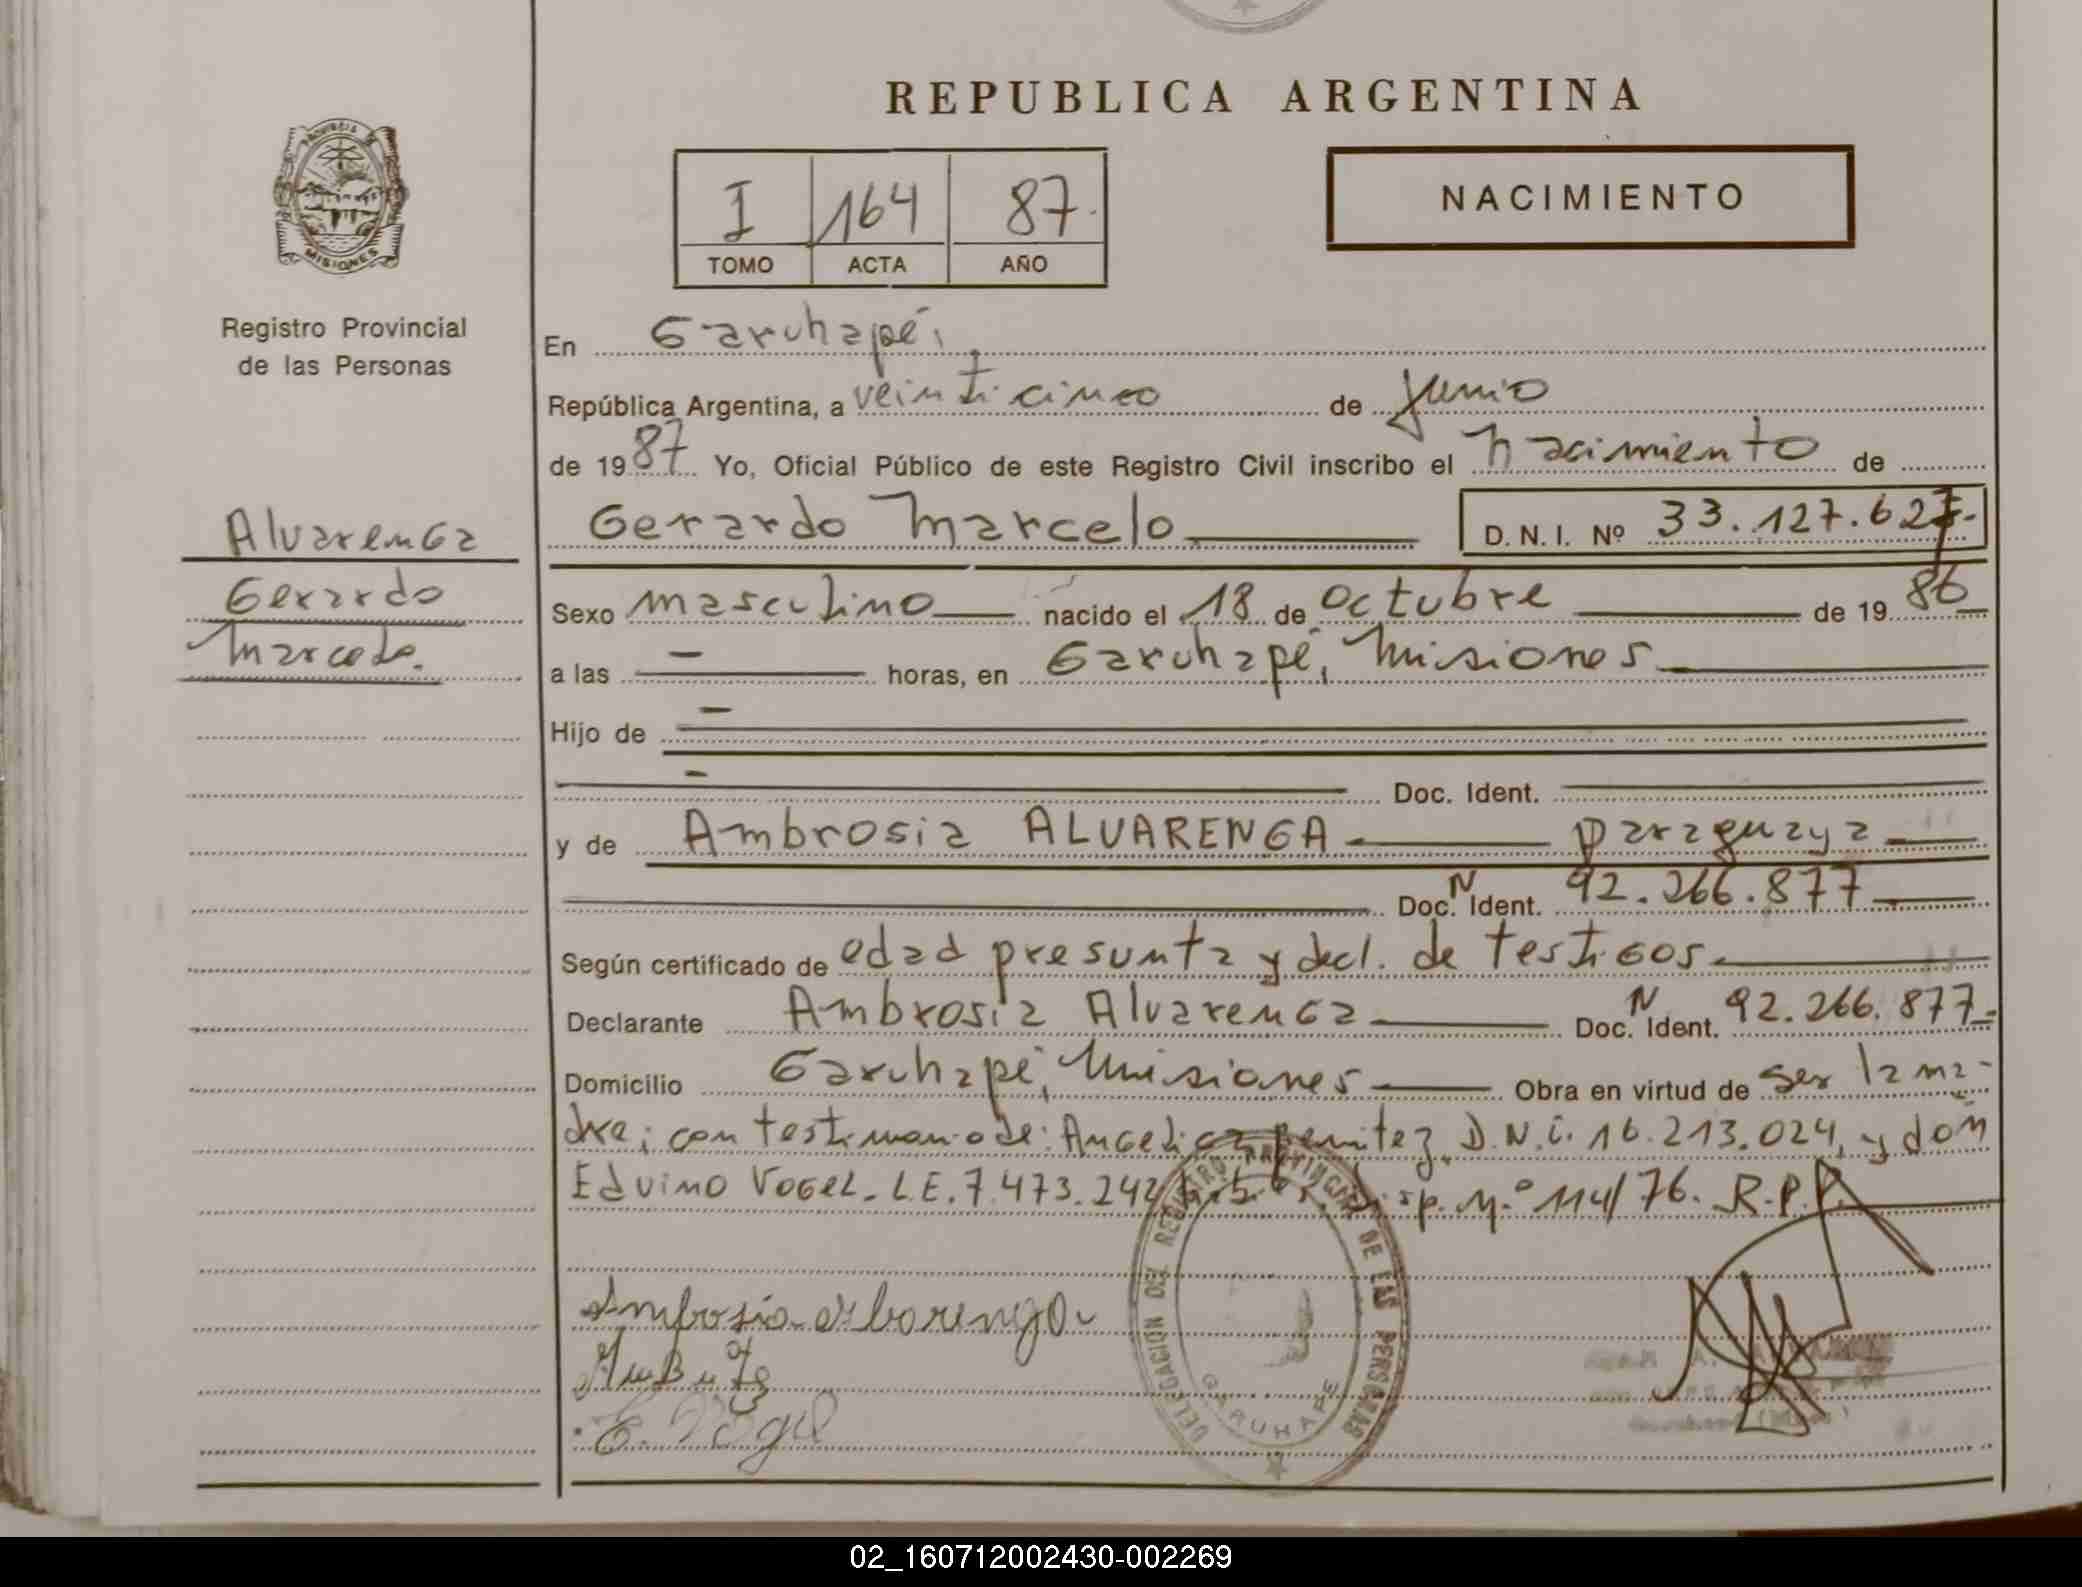 REPUBLICA ARGENTINA
PROVINCIA
MISIONES
Registro Provincial
de las Personas
I 164 87.
TOMO ACTA AÑO
NACIMIENTO
En Garuhapé,
República Argentina, a veinticinco de junio
de 1987. Yo, Oficial Público de este Registro Civil inscribo el nacimiento de
Alvarenga
Gerardo Marcelo D. N. I. Nº 33.127.627.-
Gerardo
Sexo masculino nacido el 18 de octubre de 1986
Marcelo.
a las — horas, en Garuhapé, Misiones
Hijo de —
— Doc. Ident.
y de Ambrosia ALVARENGA paraguaya
Doc. N Ident. 92.266.877
Según certificado de edad presunta y decl. de testigos.
Declarante Ambrosia Alvarenga Doc. N Ident. 92.266.877.-
Domicilio Garuhapé, Misiones Obra en virtud de ser la ma-
dre; con testimonio de: Angelica Benitez, D.N.i. 16.213.024, y don
Eduino Vogel. L.E. 7.473.242 Disp. Nº 114/76. R.P.P.
Ambrosia Albarenga
E. Vogel
DELEGACION DEL REGISTRO PROVINCIAL DE LAS PERSONAS
GARUHAPE
02_160712002430-002269